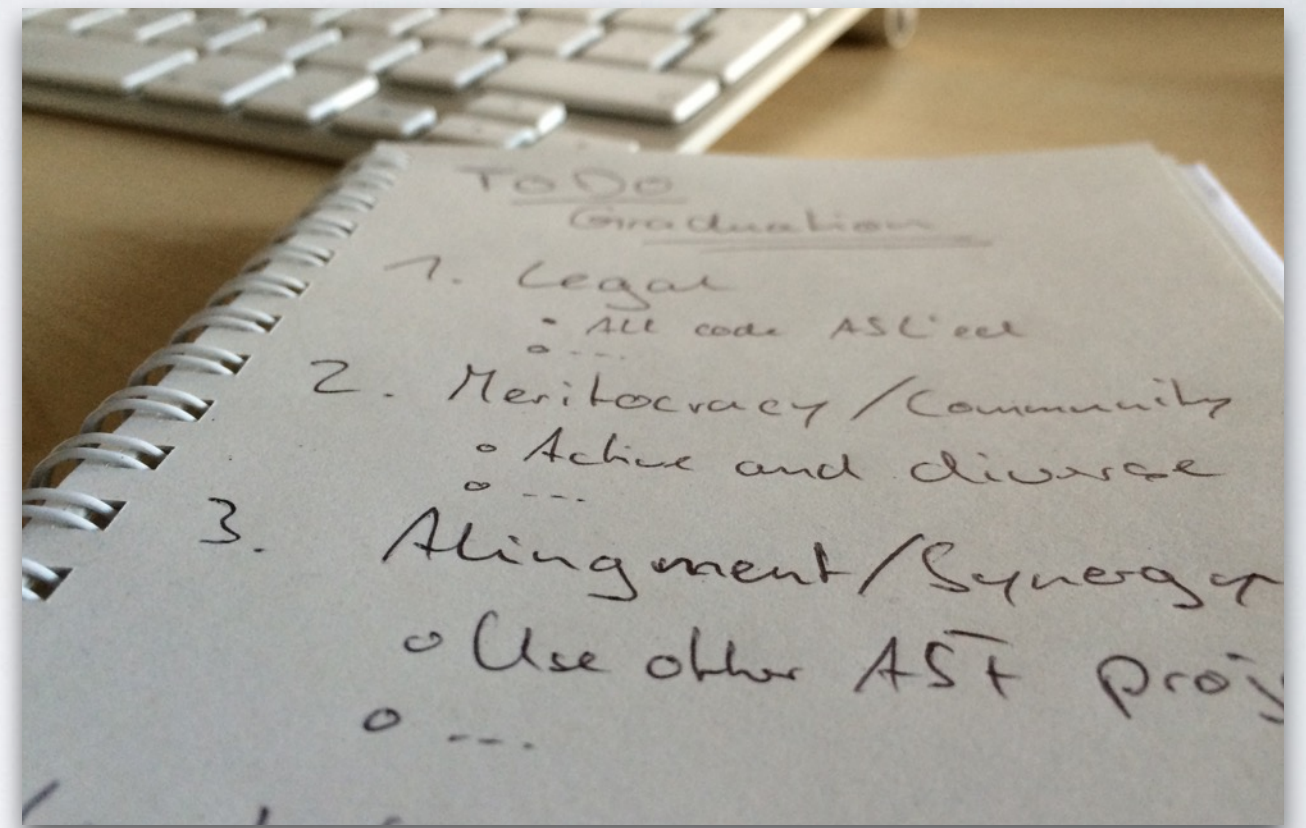 ToDo
Graduation
1. Legal
• All code ASL'ed
o ...
2. Meritocracy/Community
o Active and diverse
o ---
3. Alingment/Synergy
o Use other ASF proj
o ---